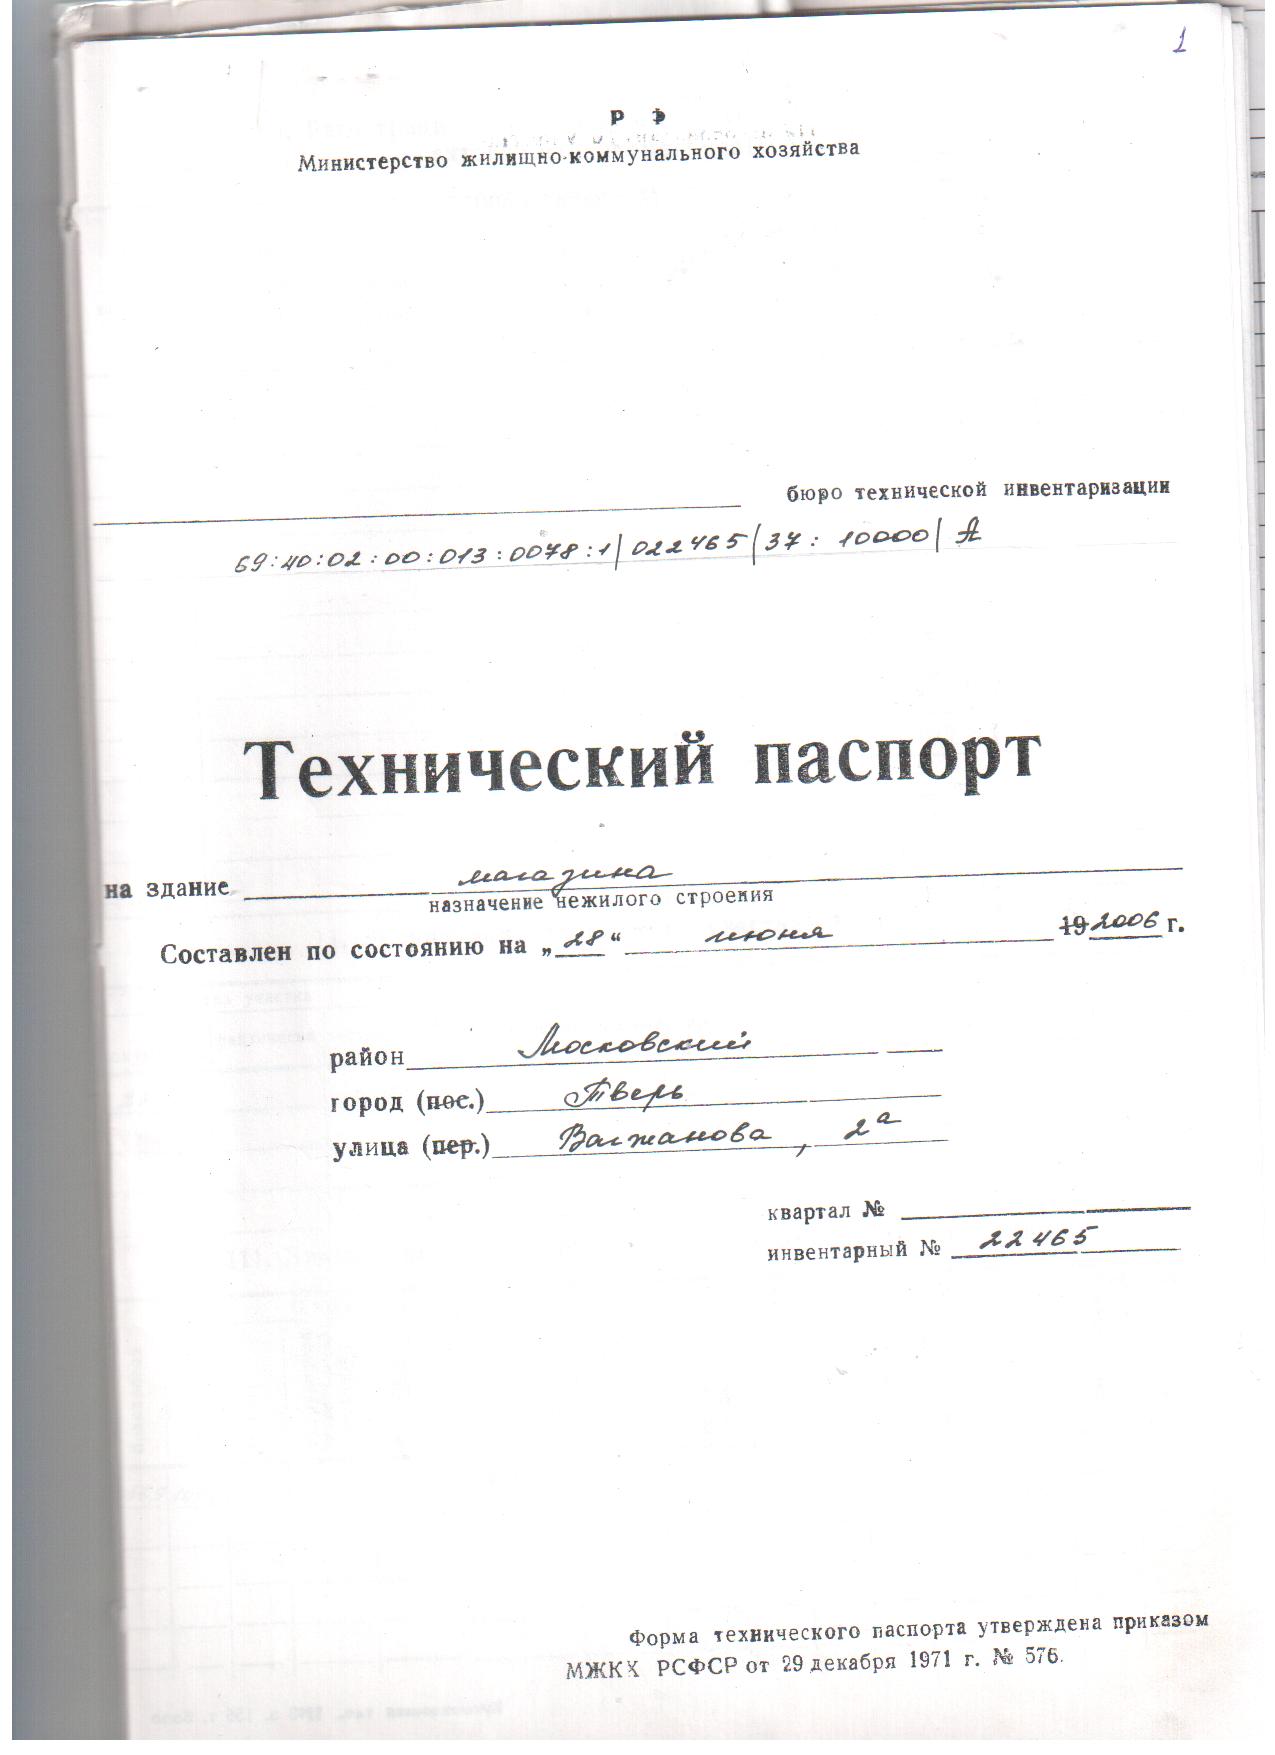 1
Р Ф
Министерство жилищно-коммунального хозяйства
бюро технической инвентаризации
69:40:02:00:013:0078:1|022465|37:10000|А
Технический паспорт
на здание магазина
назначение нежилого строения
Составлен по состоянию на „28“ июня 192006 г.
район Московский
город (пос.) Тверь
улица (пер.) Вагжанова, 2а
квартал №
инвентарный № 22465
Форма технического паспорта утверждена приказом
МЖКХ РСФСР от 29 декабря 1971 г. № 576.